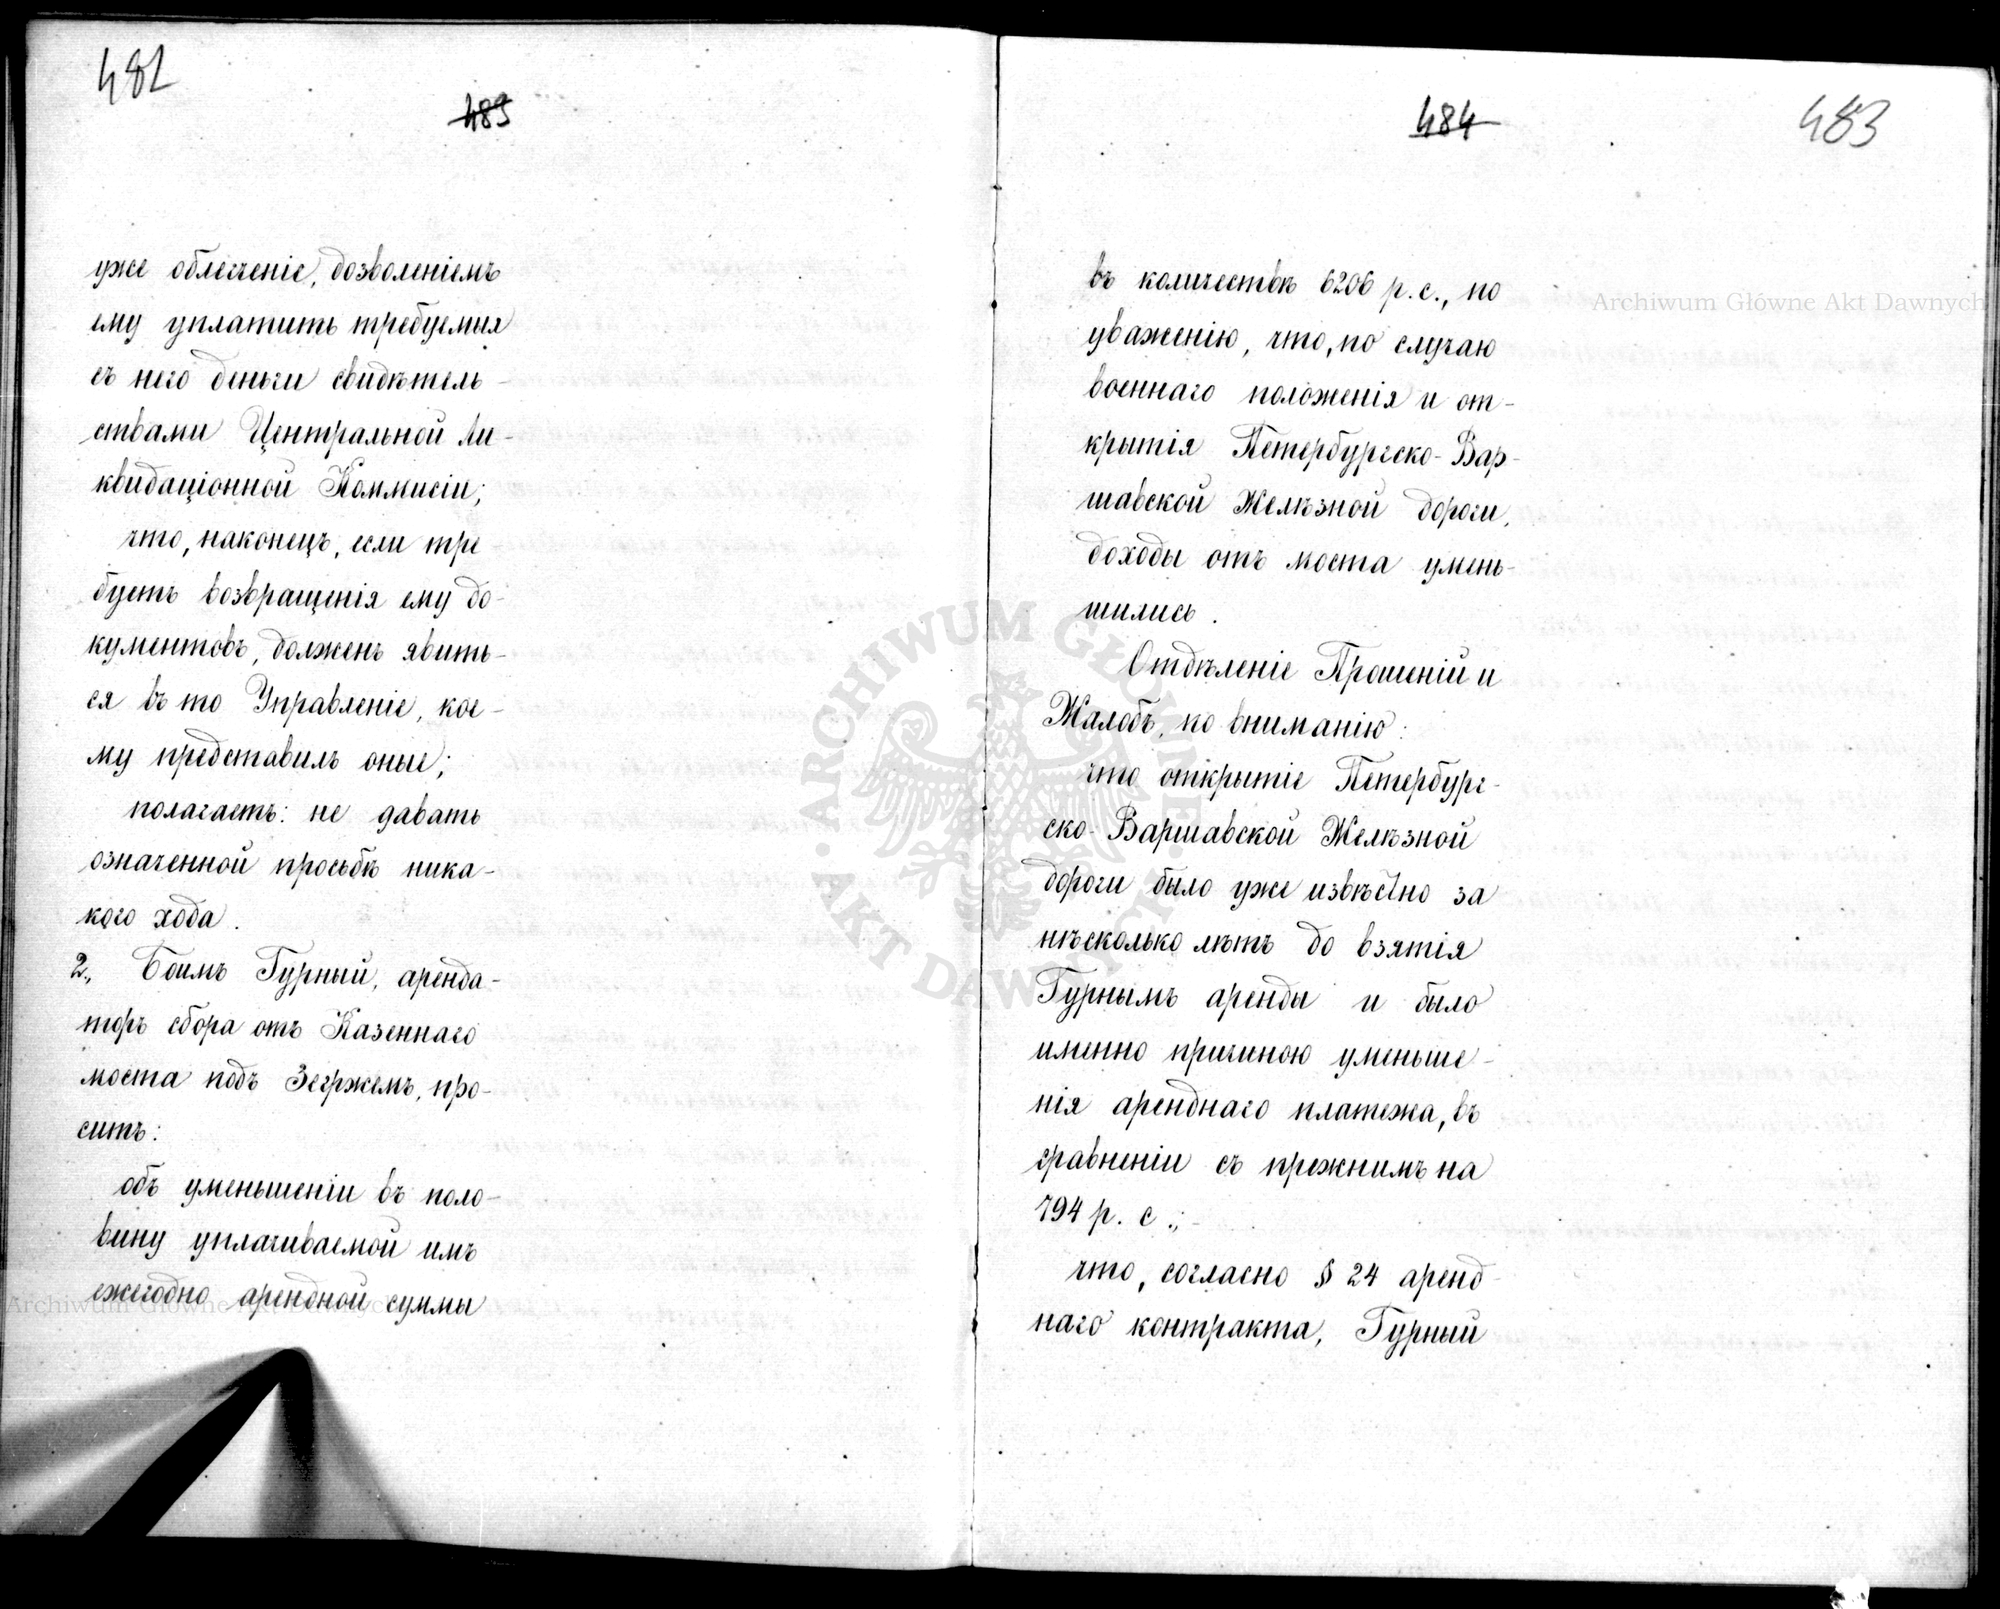 482
483
уже облегченіе, дозволеніемъ
ему уплатить требуемыя
съ него деньги свидѣтель-
ствами Центральной Ли-
квидаціонной Коммисіи;
что, наконецъ, если тре
буетъ возвращенія ему до-
кументовъ, долженъ явить-
ся въ то Управленіе, кое-
му представилъ оные;
полагаетъ: не давать
означенной просьбѣ ника-
кого хода.
2., Боимъ Гурный, аренда-
торъ сбора отъ Казеннаго
моста подъ Зегржемъ, про-
ситъ:
объ уменьшеніи въ поло-
вину уплачиваемой имъ
ежегодно арендной суммы
484
483
въ количествѣ 6206 р. с., по
уваженію, что, по случаю
военнаго положенія и от-
крытія Петербургско-Вар-
шавской Желѣзной дороги,
доходы отъ моста умень-
шились.
Отдѣленіе Прошеній и
Жалобъ, по вниманію:
что открытіе Петербург-
ско-Варшавской Желѣзной
дороги было уже извѣстно за
нѣсколько лѣтъ до взятія
Гурнымъ аренды и было
именно причиною уменьше-
нія аренднаго платежа, въ
сравненіи съ прежнимъ на
794 р. с.;
что, согласно § 24 аренд-
наго контракта, Гурный
Archiwum Główne Akt Dawnych
Archiwum Główne Akt Dawnych
ARCHIWUM GŁÓWNE AKT DAWNYCH